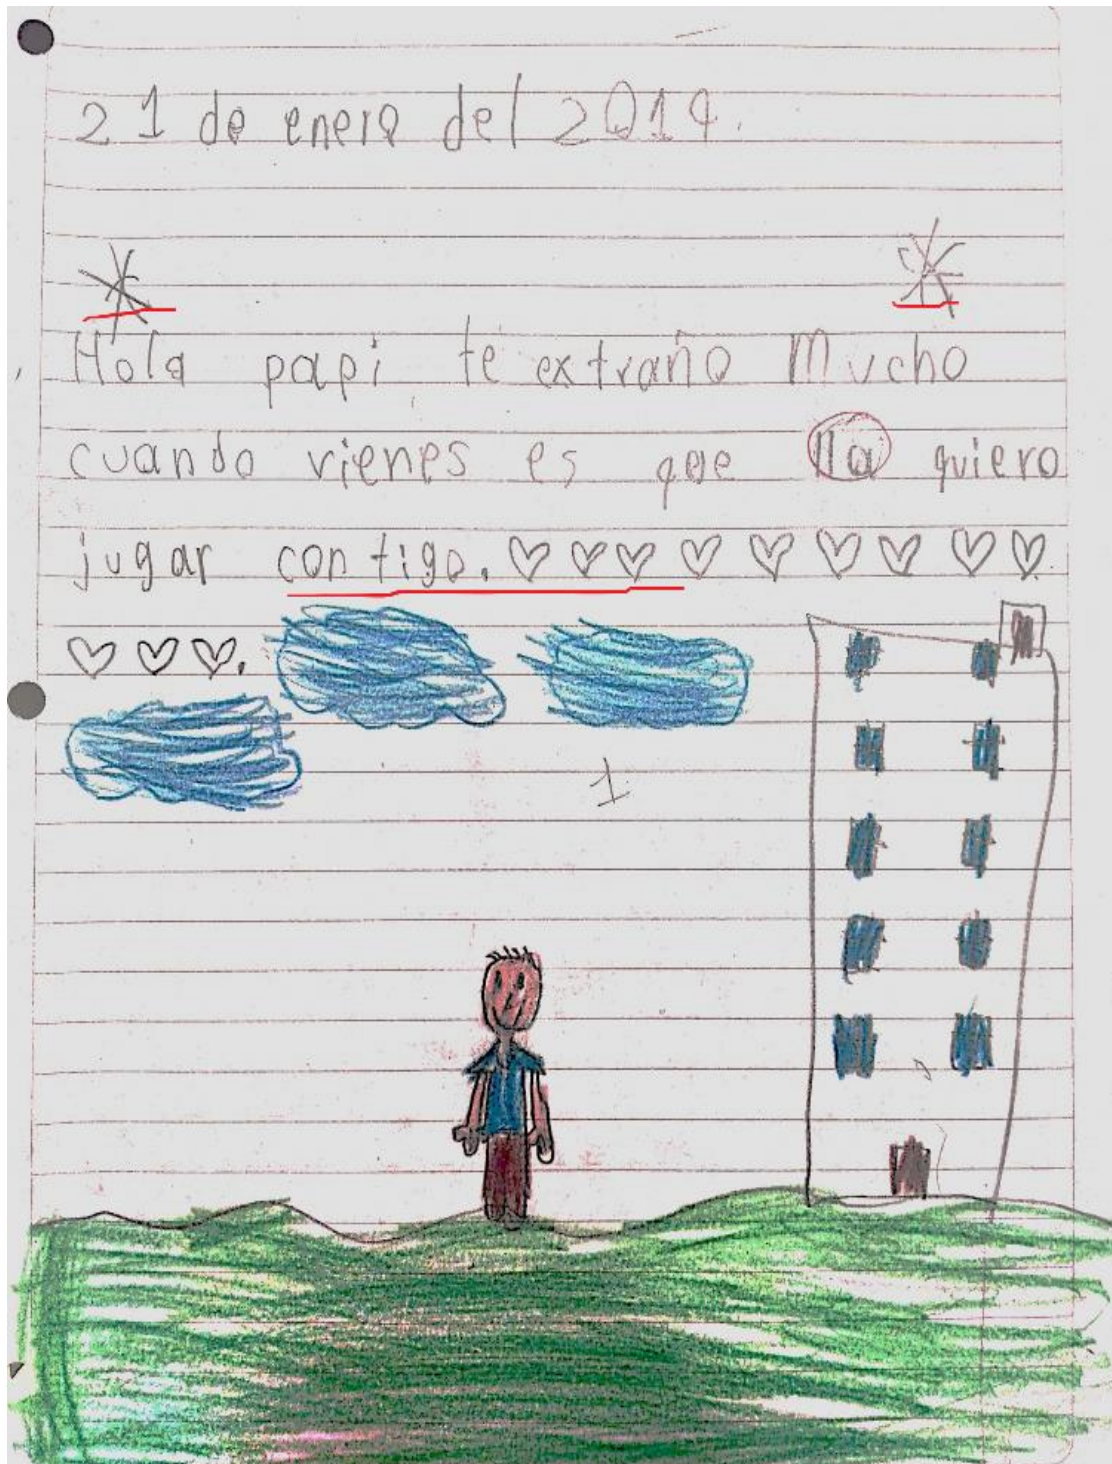 21 de enero del 2014.
Hola papi te extraño mucho
cuando vienes es que lla quiero
jugar contigo. ♡ ♡ ♡ ♡ ♡ ♡ ♡ ♡ ♡
♡ ♡ ♡.
1